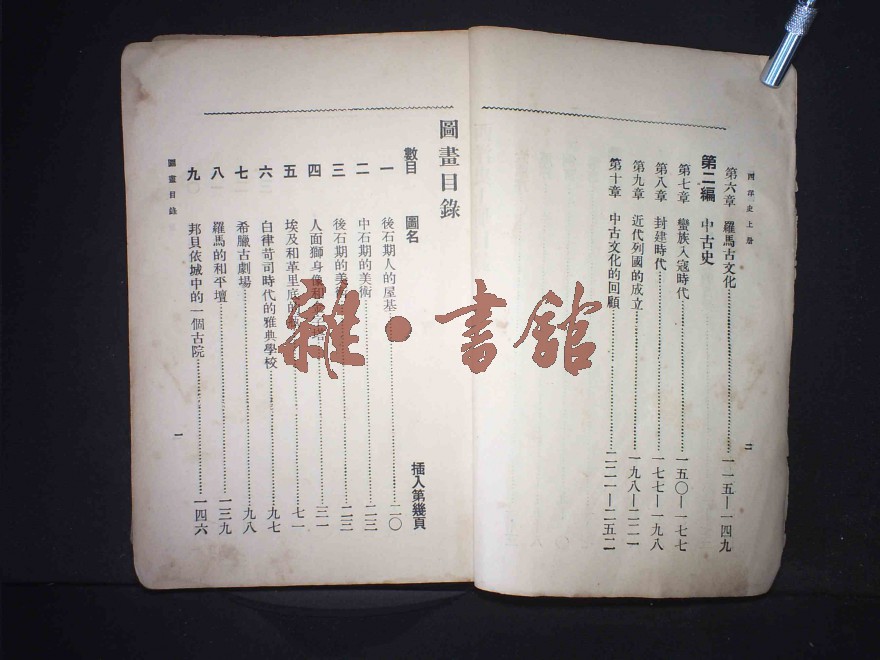 西洋史上册
第六章 羅馬古文化……一一五—一四九
第二編 中古史
第七章 蠻族入寇時代……一五〇—一七七
第八章 封建時代……一七七—一九八
第九章 近代列國的成立……一九八—二二一
第十章 中古文化的回顧……二二一—二五二
二
圖畫目錄
數目 圖名 插入第幾頁
一 後石期人的屋基……二〇
二 中石期的美術……二三
三 後石期的美術……二三
四 人面獅身像和……三一
五 埃及和革里底的……七一
六 白律苛司時代的雅典學校……九七
七 希臘古劇場……九八
八 羅馬的和平壇……一三九
九 邦貝依城中的一個古院……一四六
圖畫目錄
一
雜·書館